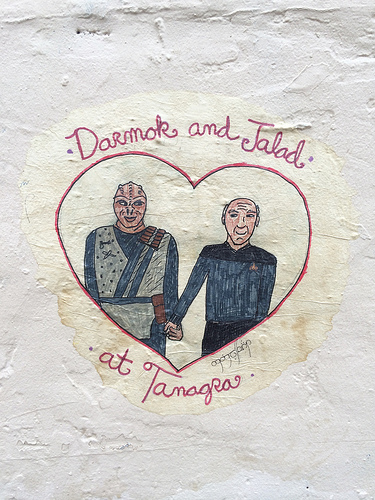 Darmok and Jalad
at Tanagra